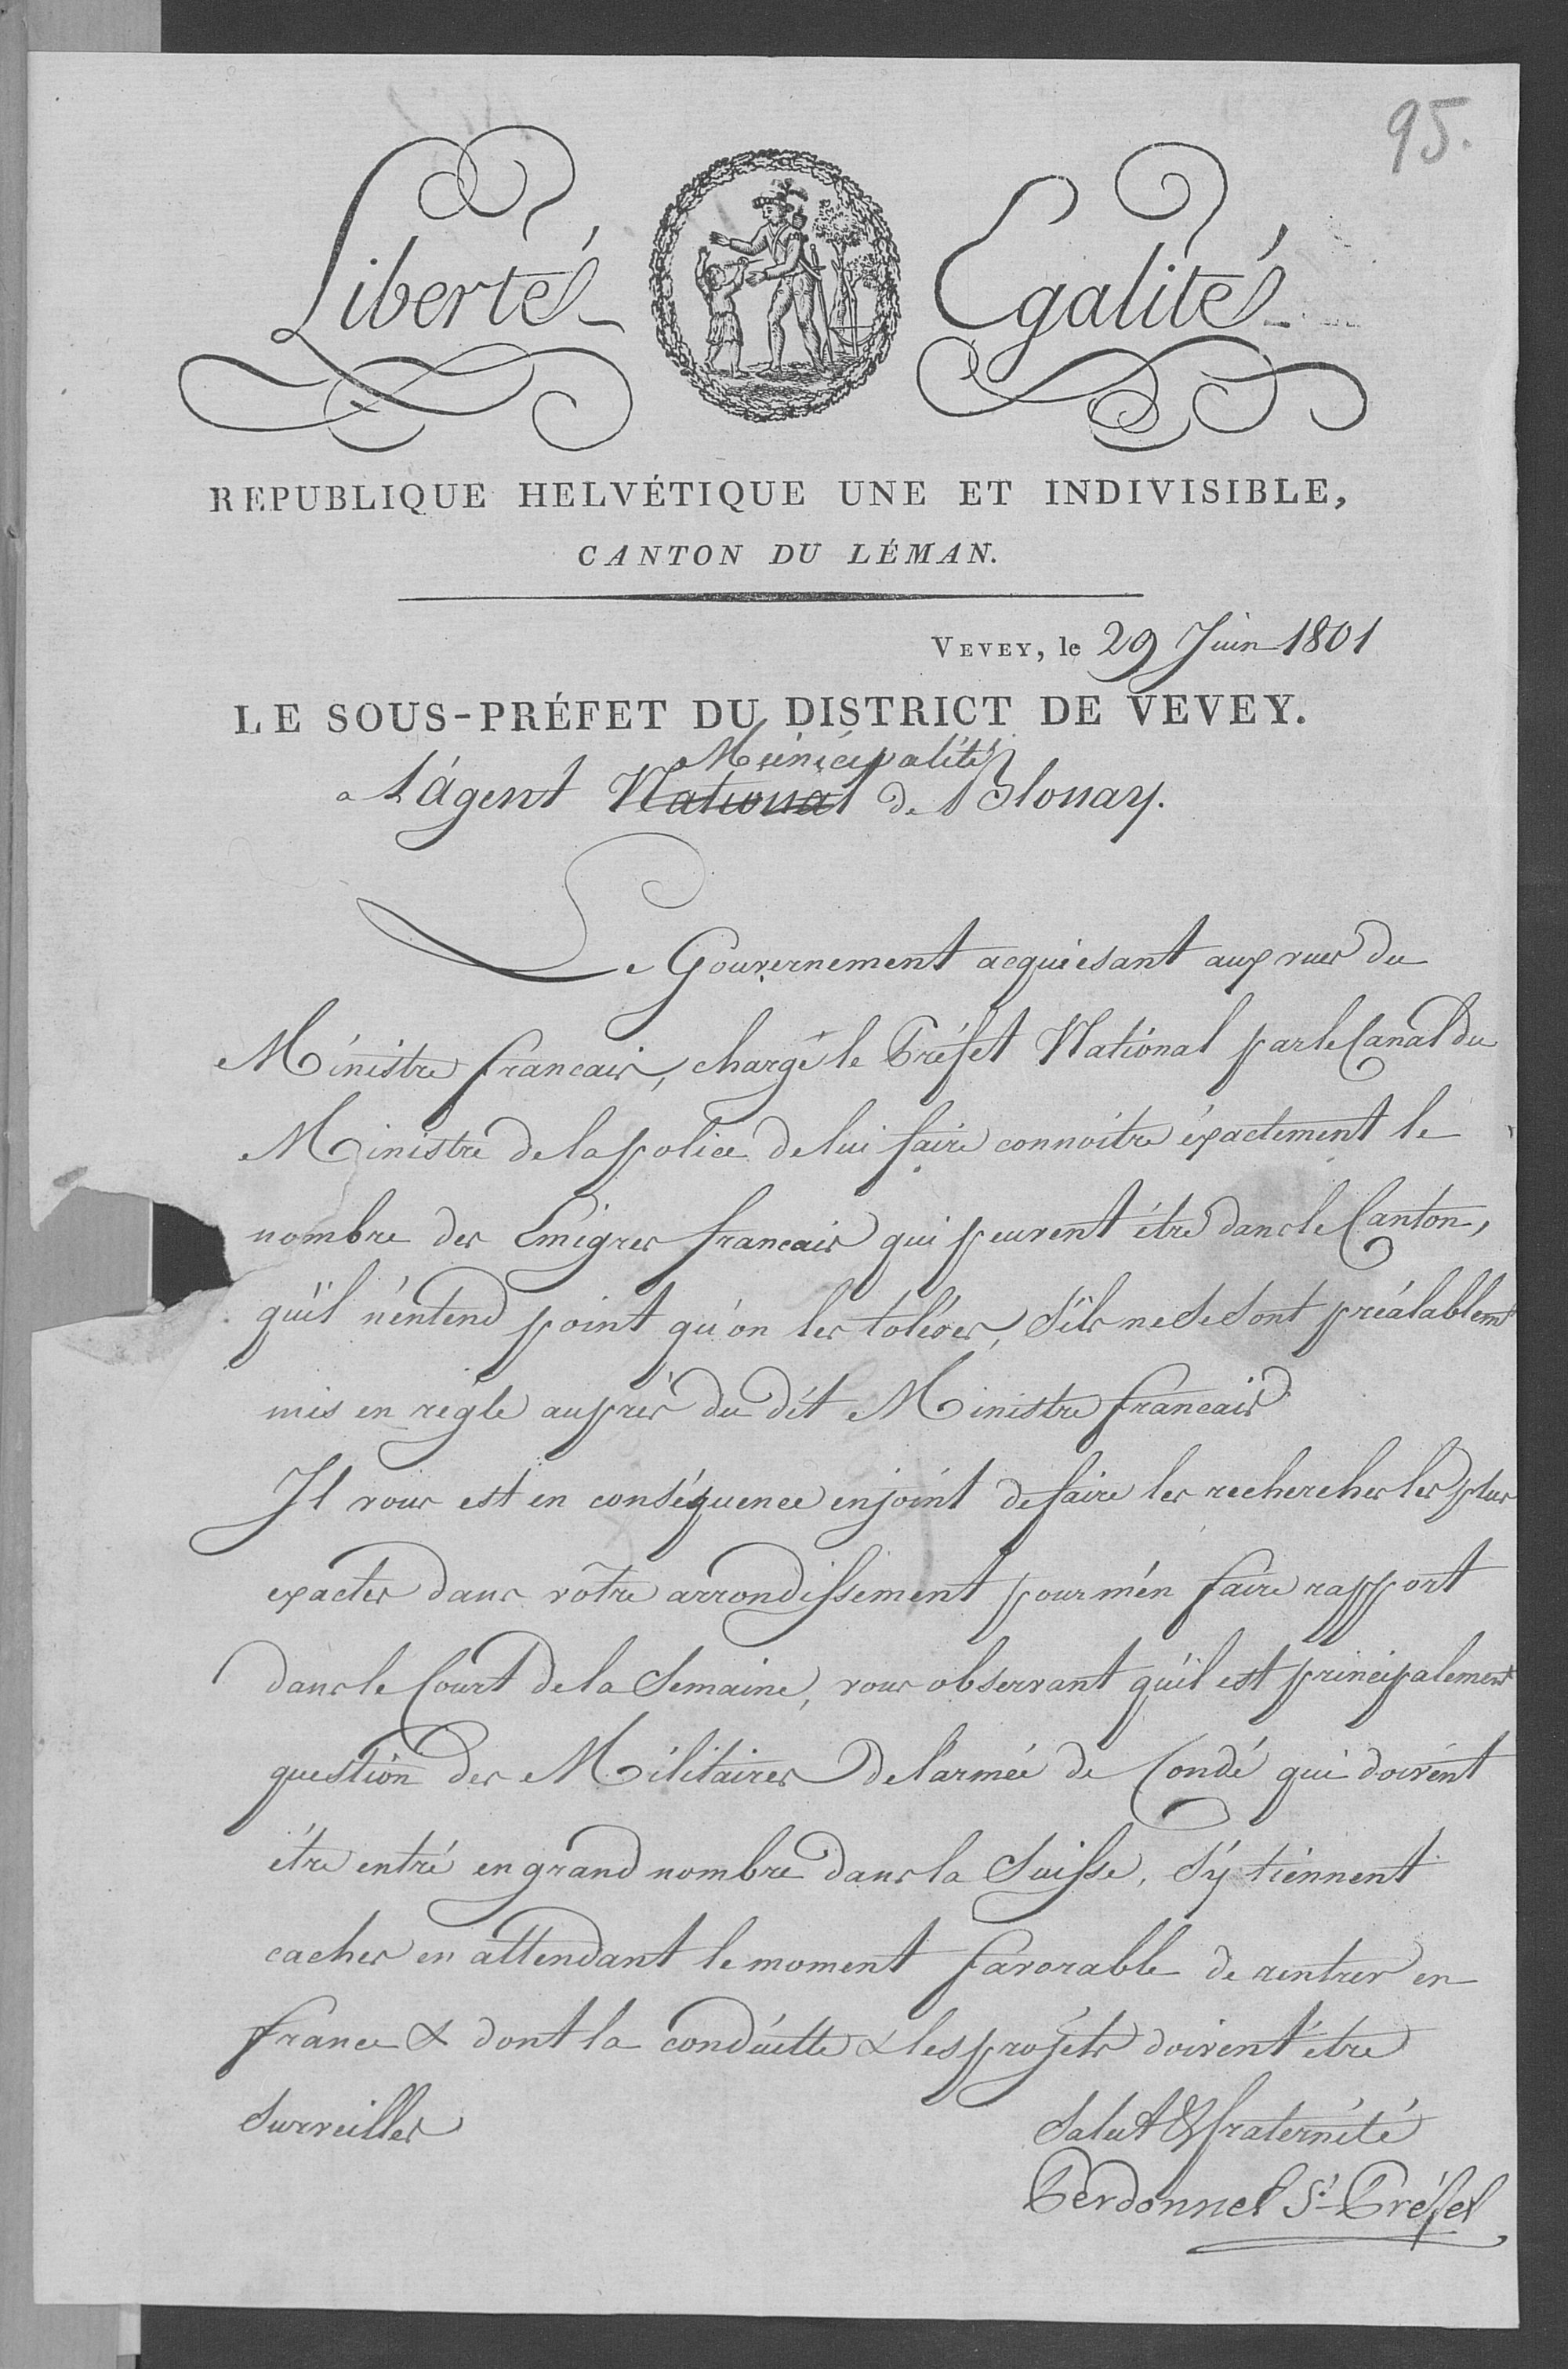 95.
Liberté Egalité
REPUBLIQUE HELVÉTIQUE UNE ET INDIVISIBLE,
CANTON DU LÉMAN.
VEVEY, le 29 Juin 1801
LE SOUS-PRÉFET DU DISTRICT DE VEVEY.
Municipalité
a L'ágent National de Blonay.
Le Gouvernement acquiesant aux vues du
Ministre francais, charge le Préfet National par le Canal du
Ministre de la police de lui faire connoitre éxactement le
nombre des Emigres francais qui peuvent être dans le Canton,
qu'il n'entend point qu'on les toléres, s'ils ne se sont préalablemt
mis en règle auprès du dit Ministre francais
Il vous est en conséquence enjoint de faire les recherches les plus
exactes dans vôtre arrondissement pour m'en faire rapport
dans le Court de la Semaine, vous observant qu'il est principalement
question des Militaires de l'armée de Condé qui doivent
être entré en grand nombre dans la Suisse, s'y tiennent
caches en attendant le moment favorable de rentrer en
france & dont la conduitte & les projets doivent être
surveilles
Salut & fraternité
Perdonnet S.-Préfet